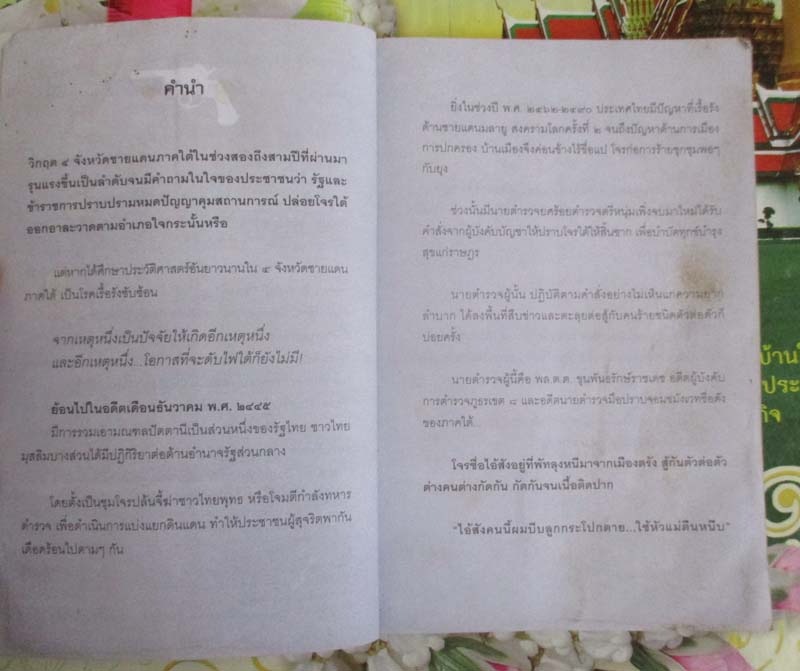 คำนำ
วิกฤต ๔ จังหวัดชายแดนภาคใต้ในช่วงสองถึงสามปีที่ผ่านมา
รุนแรงขึ้นเป็นลำดับจนมีคำถามในใจของประชาชนว่า รัฐและ
ข้าราชการปราบปรามหมดปัญญาคุมสถานการณ์ ปล่อยโจรใต้
ออกอาละวาดตามอำเภอใจกระนั้นหรือ
แต่หากได้ศึกษาประวัติศาสตร์อันยาวนานใน ๔ จังหวัดชายแดน
ภาคใต้ เป็นโรคเรื้อรังซับซ้อน
จากเหตุหนึ่งเป็นปัจจัยให้เกิดอีกเหตุหนึ่ง
และอีกเหตุหนึ่ง...โอกาสที่จะดับไฟใต้ก็ยังไม่มี!
ย้อนไปในอดีตเดือนธันวาคม พ.ศ. ๒๔๔๕
มีการรวมเอามณฑลปัตตานีเป็นส่วนหนึ่งของรัฐไทย ชาวไทย
มุสลิมบางส่วนได้มีปฏิกิริยาต่อต้านอำนาจรัฐส่วนกลาง
โดยตั้งเป็นชุมโจรปล้นจี้ฆ่าชาวไทยพุทธ หรือโจมตีกำลังทหาร
ตำรวจ เพื่อดำเนินการแบ่งแยกดินแดน ทำให้ประชาชนผู้สุจริตพากัน
เดือดร้อนไปตามๆ กัน
ยิ่งในช่วงปี พ.ศ. ๒๔๖๒-๒๔๙๐ ประเทศไทยมีปัญหาที่เรื้อรัง
ด้านชายแดนมลายู สงครามโลกครั้งที่ ๒ จนถึงปัญหาด้านการเมือง
การปกครอง บ้านเมืองจึงค่อนข้างไร้ขื่อแป โจรก่อการร้ายชุกชุมพอๆ
กับยุง
ช่วงนั้นมีนายตำรวจยศร้อยตำรวจตรีหนุ่มเพิ่งจบมาใหม่ได้รับ
คำสั่งจากผู้บังคับบัญชาให้ปราบโจรใต้ให้สิ้นซาก เพื่อบำบัดทุกข์บำรุง
สุขแก่ราษฎร
นายตำรวจผู้นั้น ปฏิบัติตามคำสั่งอย่างไม่เห็นแก่ความยาก
ลำบาก ได้ลงพื้นที่สืบข่าวและตะลุยต่อสู้กับคนร้ายชนิดตัวต่อตัวก็
บ่อยครั้ง
นายตำรวจผู้นี้คือ พล.ต.ต. ขุนพันธรักษ์ราชเดช อดีตผู้บังคับ
การตำรวจภูธรเขต ๘ และอดีตนายตำรวจมือปราบจอมขมังเวทชื่อดัง
ของภาคใต้...
โจรชื่อไอ้สังอยู่ที่พัทลุงหนีมาจากเมืองตรัง สู้กันตัวต่อตัว
ต่างคนต่างกัดกัน กัดกันจนเนื้อติดปาก
"ไอ้สังคนนี้ผมบีบลูกกระโปกตาย...ใช้หัวแม่ตีนหนีบ"